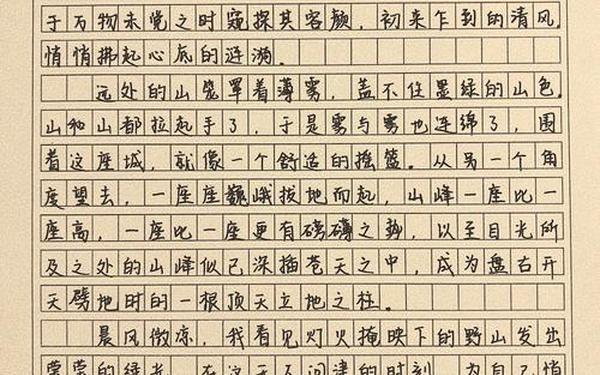 于万物未觉之时窥探其容颜，初来乍到的清风，
悄悄拂起心底的涟漪。
远处的山笼罩着薄雾，盖不住墨绿的山色。
山和山都拉起手了，于是雾与雾也连绵了，围
着这座城，就像一个舒适的摇篮。从另一个角
度望去，一座座巍峨拔地而起，山峰一座比一
座高，一座比一座更有磅礴之势，以至目光所
及之处的山峰似已深插苍天之中，成为盘古开
天劈地时的一根顶天立地之柱。
晨风微凉，我看见灯火掩映下的野山发出
荧荧的绿光，在这天不问津的时刻，为自己悄